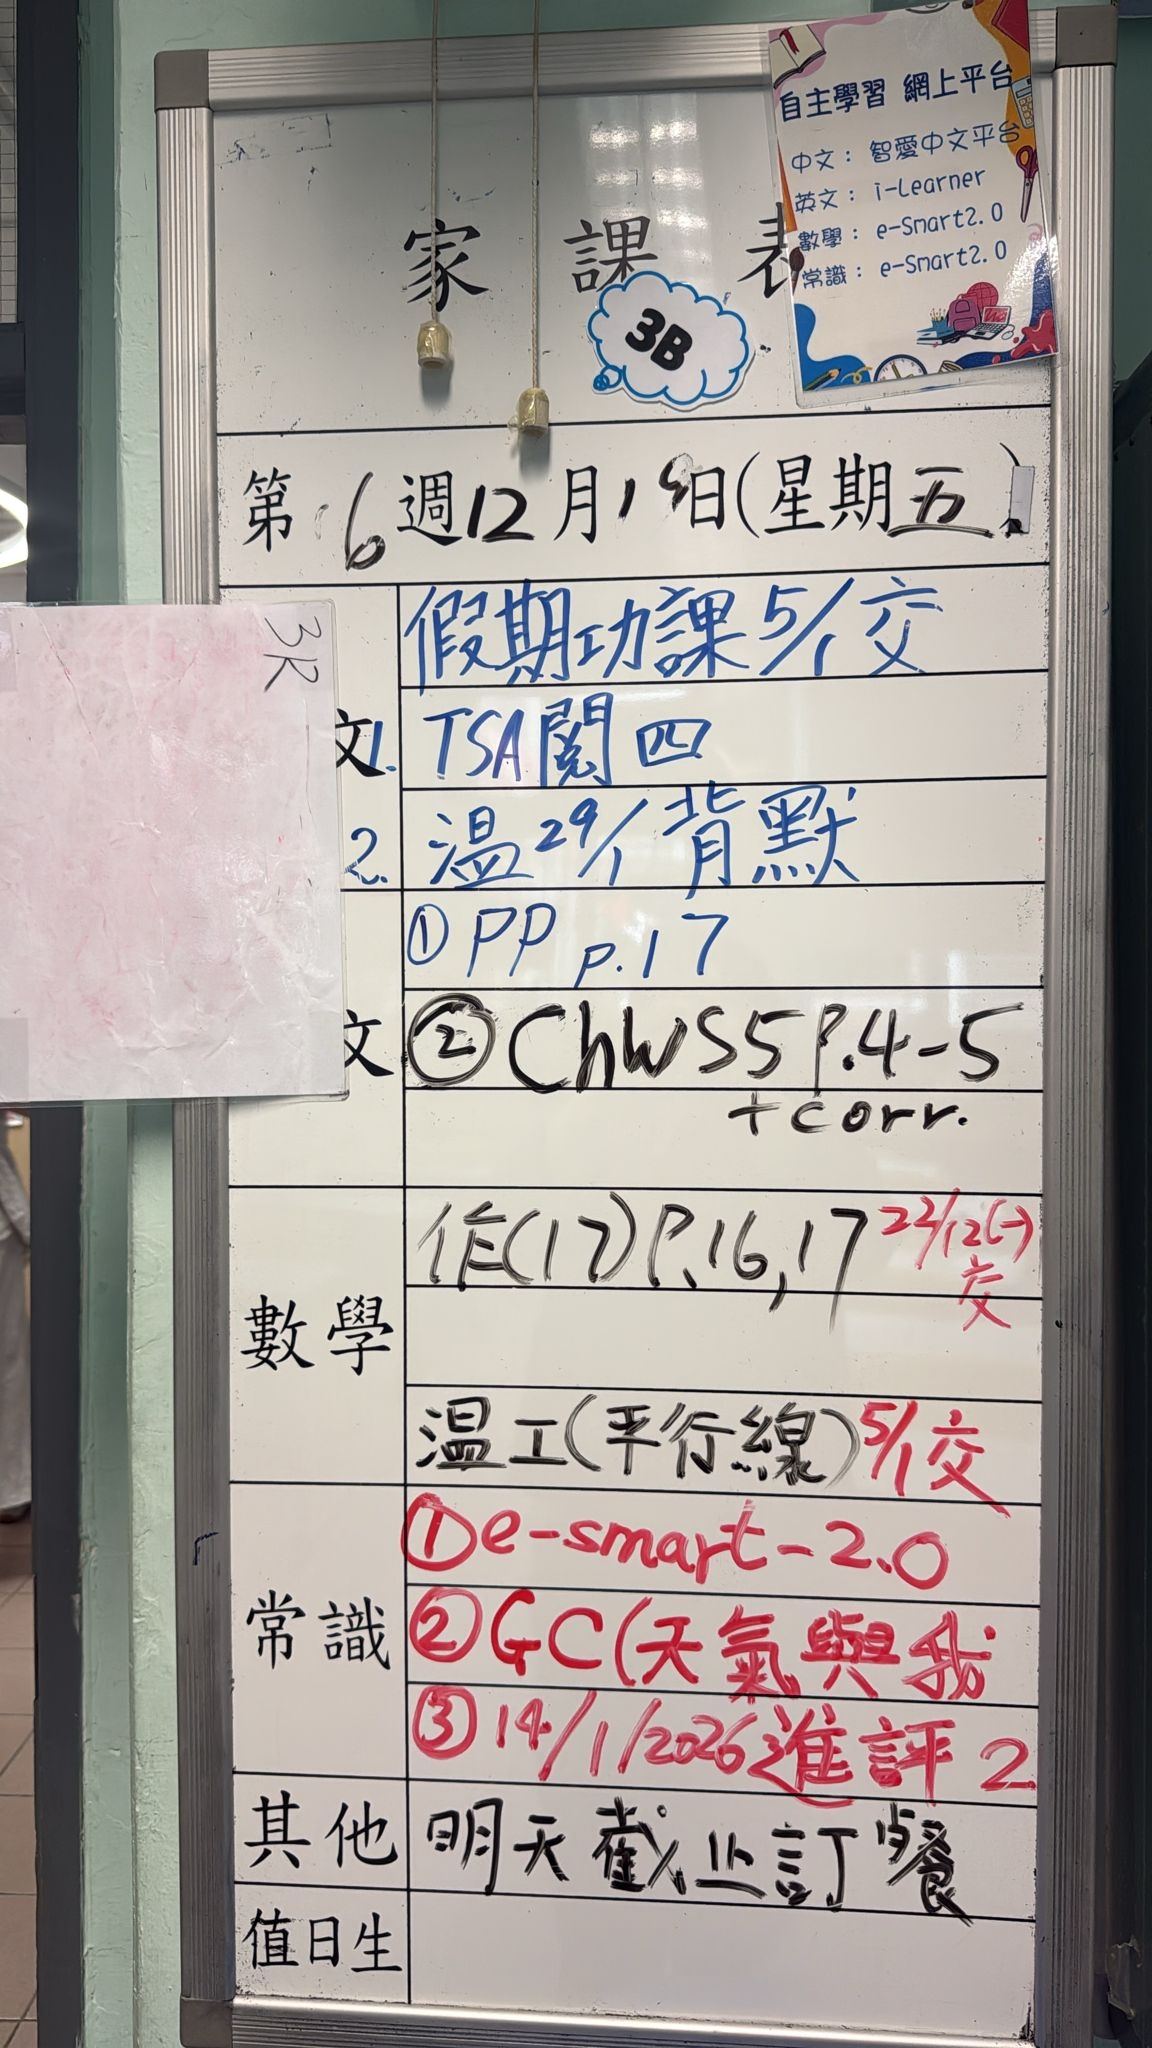 自主學習 網上平台
中文： 智愛中文平台
英文： i-Learner
數學： e-Smart2.0
常識： e-Smart2.0
家 課 表
3B
第 6 週 12 月 19 日 (星期 五 )
假期功課 5/1 交
3R
文 1. TSA閱 四
2. 温 29/1 背默
① PP p.17
文 ② ChWS5 P.4-5
+corr.
作(17) P.16,17 22/12(一)
交
數學
温工(平行線) 5/1交
① e-smart-2.0
常識 ② GC(天氣與我
③ 14/1/2026 進評 2
其他 明天截止訂餐
值日生